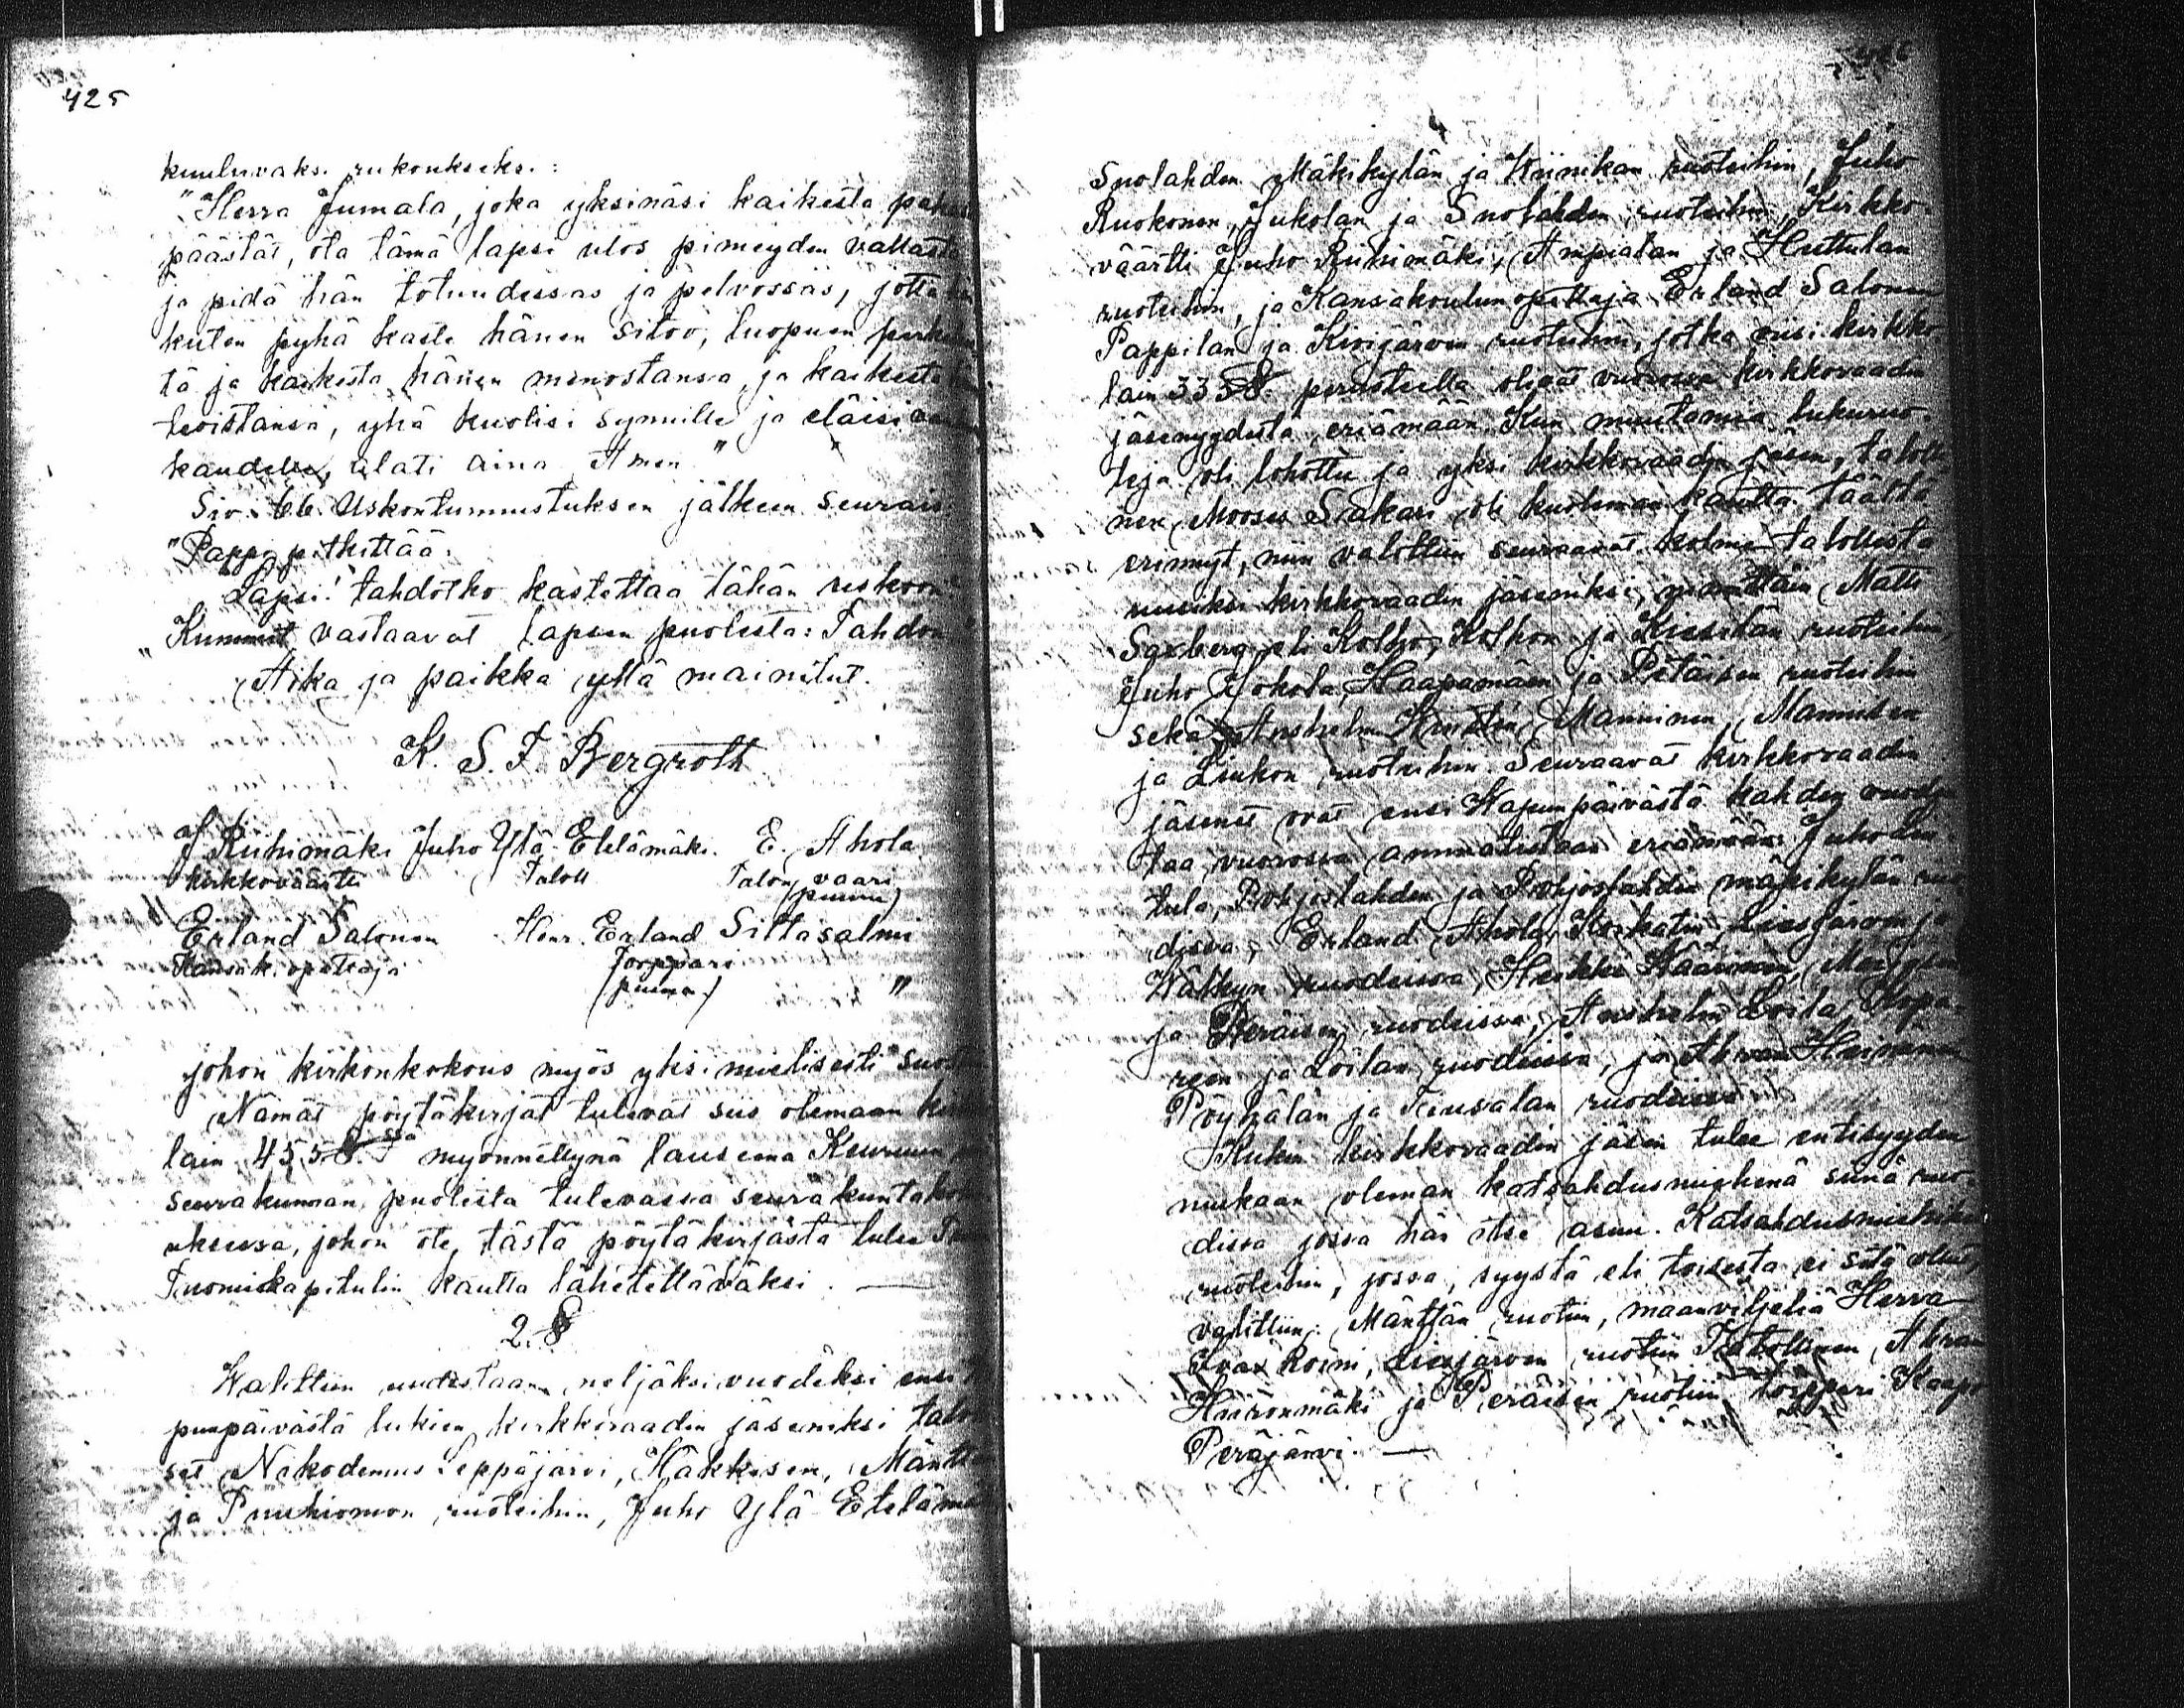 425
kuuluvaksi rukoukseksi:
"Herra Jumala, joka yksinäsi kaikesta
päästät, ota tämä lapsi ulos pimeyden vallasta
ja pidä hän totuudessas ja pelvossas, jotta
kuten pyhä kaste hänen sitoo, luopuen
tä ja kaikesta hänen menostansa, ja kaikista
teoistansa, yhä kuolisi synnille ja eläisi
kaudelle, alati aina Amen."
Siv. 66. Uskontunnustuksen jälkeen seurais
"Pappi pitkittää:
Lapsi! tahdotko kastettaa tähän uskoon
"Kummit vastaavat lapsen puolesta: Tahdon"
Aika ja paikka yllä mainitut.
K. S. F. Bergroth
J Riihimäki Juho Ylä-Etelämäki. E. Ahola
kirkkoväärti Taloll Talon vaari
(puumu)
Erland Salonen Henr. Erland Siltasalmi
Kansak. opettaja Torppari
(puum.) "
johon kirkonkokous myös yksimielisesti
Nämät pöytäkirjat tulevat siis olemaan
lain 455 §. myönnettynä lauseena Keuruun
seurakunnan puolesta tulevassa seurakuntako
uksessa, johon ote tästä pöytäkirjasta tulee
Tuomiokapitulin kautta lähetettäväksi. —
2. §
Walittiin uudestaan neljäksi vuodeksi ensi
punpäivästä lukien kirkkoraadin jäseniksi
set Nikodemus Leppäjärvi, Häkkisen,
ja Puuhiomon ruoteihin, Juho Ylä-Etelämä
Suolahden Mäkikylän ja Wiinikan ruoteihin, Juho
Ruokonen, Jukolan ja Suolahden ruoteihin, Kirkko-
väärtti Juho Riihimäki, Ampialan ja Huttulan
ruoteihin, ja Kansakoulunopettaja Erland Salonen
Pappilan ja Kivijärven ruoteihin, jotka ensi. kirkko-
lain 335 §. perusteella olivat vuorossa kirkkoraadin
jäsenyydestä eriämään. Kun muutamia lukuruo-
teja oli lohottu ja yksi kirkkoraadin jäsen, talolli
nen Mooses Sakari oli kuoleman kautta täältä
erinnyt, niin valittiin seuraavat kolme talollista
uusiksi kirkkoraadin jäseniksi, nimittäin Matti
Saxberg eli Kolho, Kolhon ja ruoteihin,
Juho Jokela, Haapamäen ja Pitäisen ruoteihin
sekä Anshelm Manninen, Mannisen
ja Liukon ruoteihin. Seuraavat kirkkoraadin
jäsenet ovat ensi Wapunpäivästä kahden vuoden
taa vuorossa ammatistaan eriämään: Juho
tula, Pohjoslahden ja Pohjoslahden mäkikylän
dissa, Erland Ahola, Liesjärven ja
ruodeissa, Heikki
ja Peräisen ruodeissa, Anshelm Loila,
reen ja Loilan ruodeissa, ja
Pöyhälän ja Tiusalan ruodeissa
Kukin kirkkoraadin jäsen tulee entisyyden
mukaan oleman katsahdusmiehenä siinä ruo-
dissa jossa hän itse asuu. Katsahdusmiehiksi
ruoteihin, jossa, syystä eli toisesta ei sitä ollut,
valittiin: Mäntän ruotiin, maanviljeliä Herra
Ivar Roini, Liesjärven ruotiin Talollinen,
Hiironmäki ja Peräisen ruotiin torppari
Peräjärvi. —